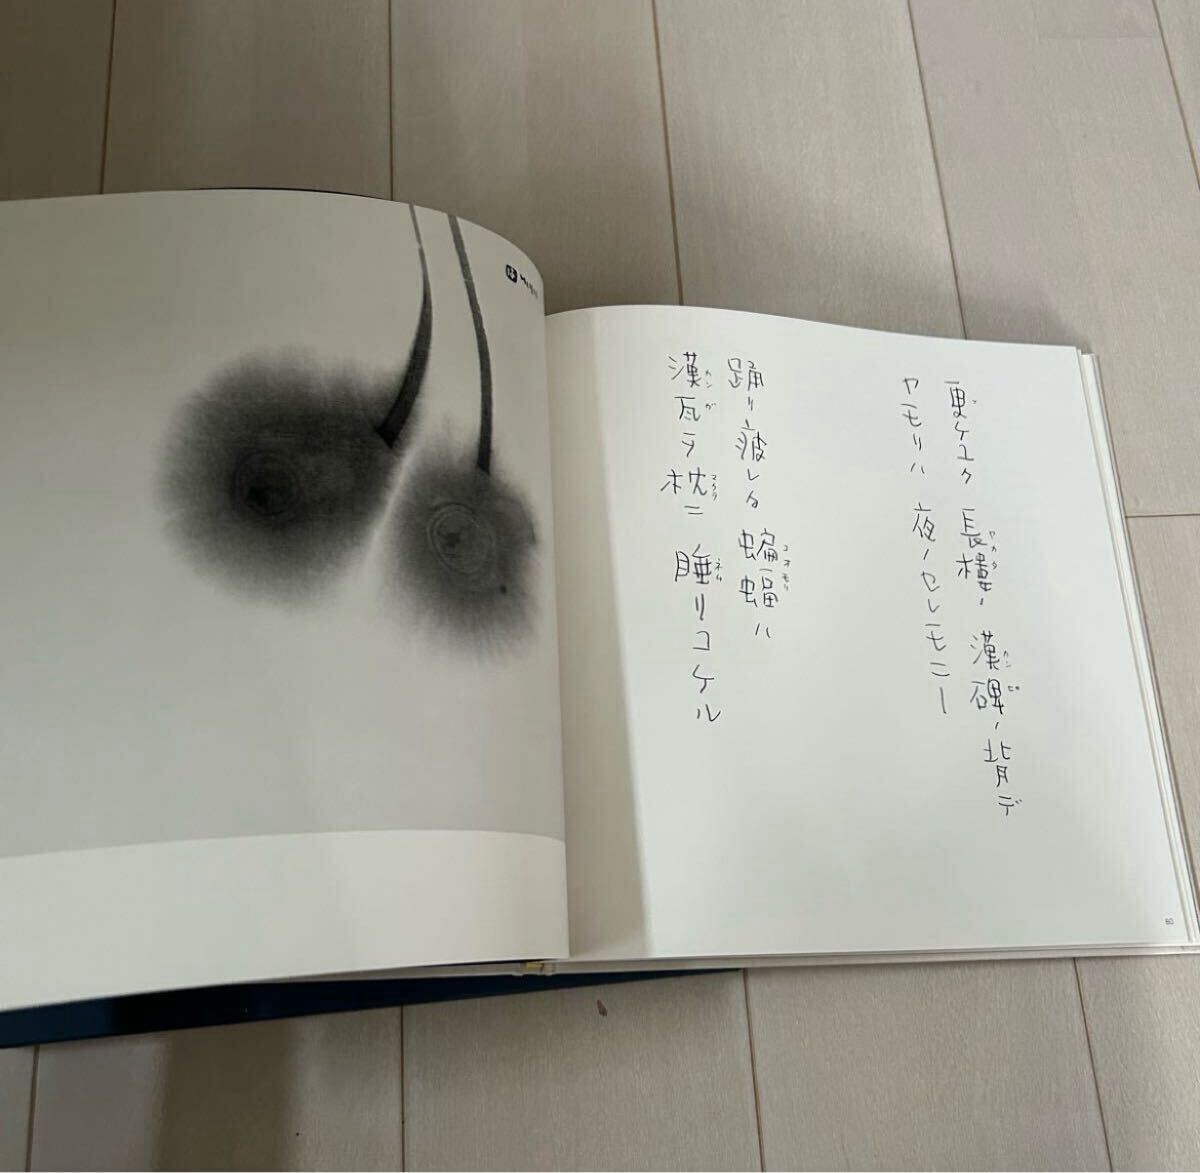 更ケユク 長樓ノ 漢碑ノ 背デ
ヤモリハ 夜ノセレモニー
踊リ疲レタ 蝙蝠ハ
漢瓦ヲ枕ニ 睡リコケル
80